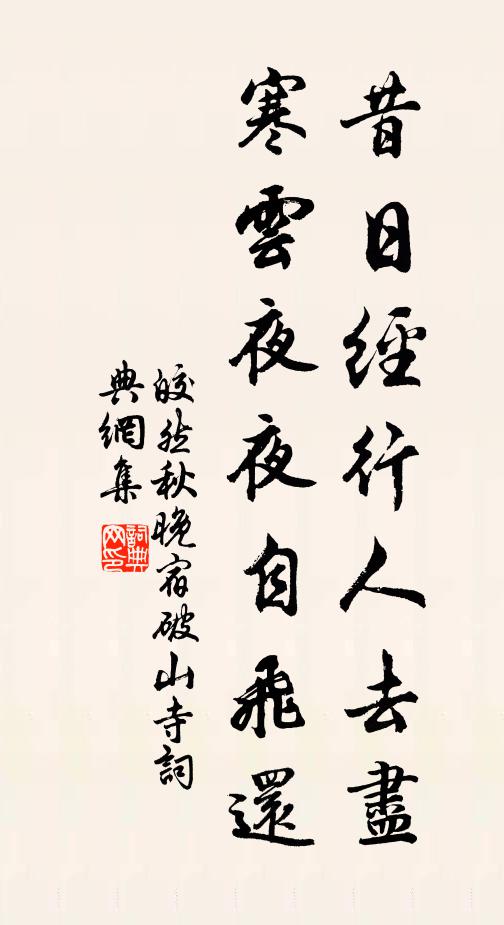 昔日經行人去盡
寒雲夜夜自飛還
皎然秋晚宿破山寺詞
典網集
詞典網印